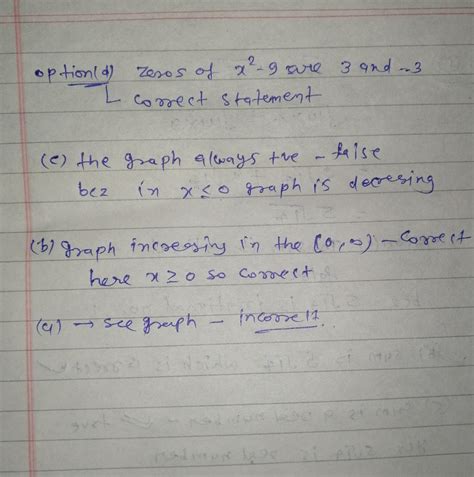 option(d) zeros of x²-9 are 3 and -3
correct statement
(c) the graph always +ve - false
bez in x≤0 graph is decresing
(b) graph increasing in the (0,∞) - correct
here x≥0 so correct
(a) → see graph - incorrect